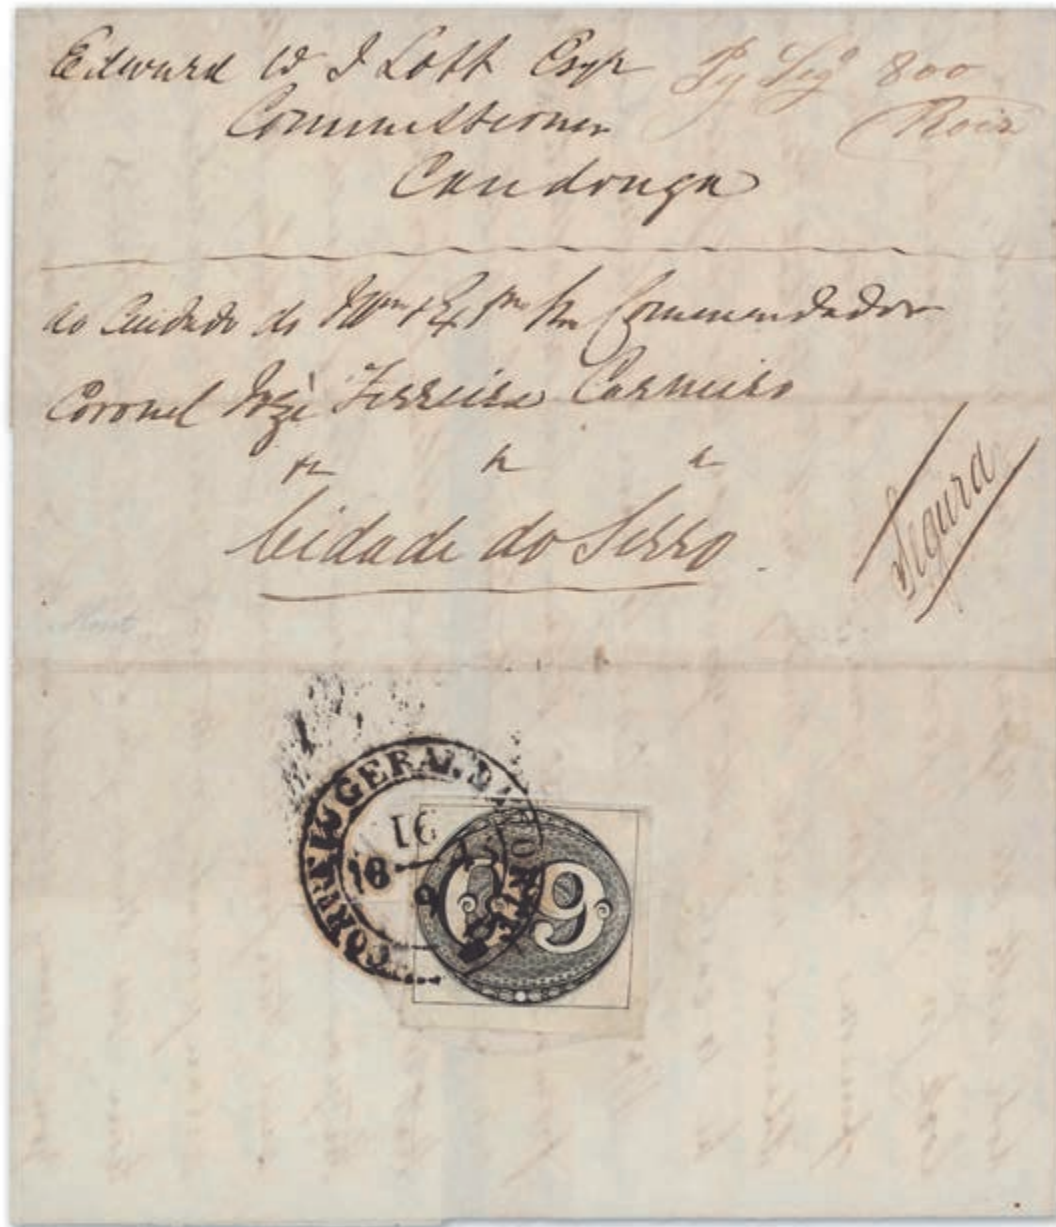 Edward W J Lott Esqr
Commissioner
Candonga
Pg Sego 800
Reis
ao Cuidado do Illmo & Exmo Snr Commendador
Coronel Jozè Ferreira Carneiro
Cidade do Serro
Segura
CORREIO GERAL DA CORTE
16
18 43
9
60